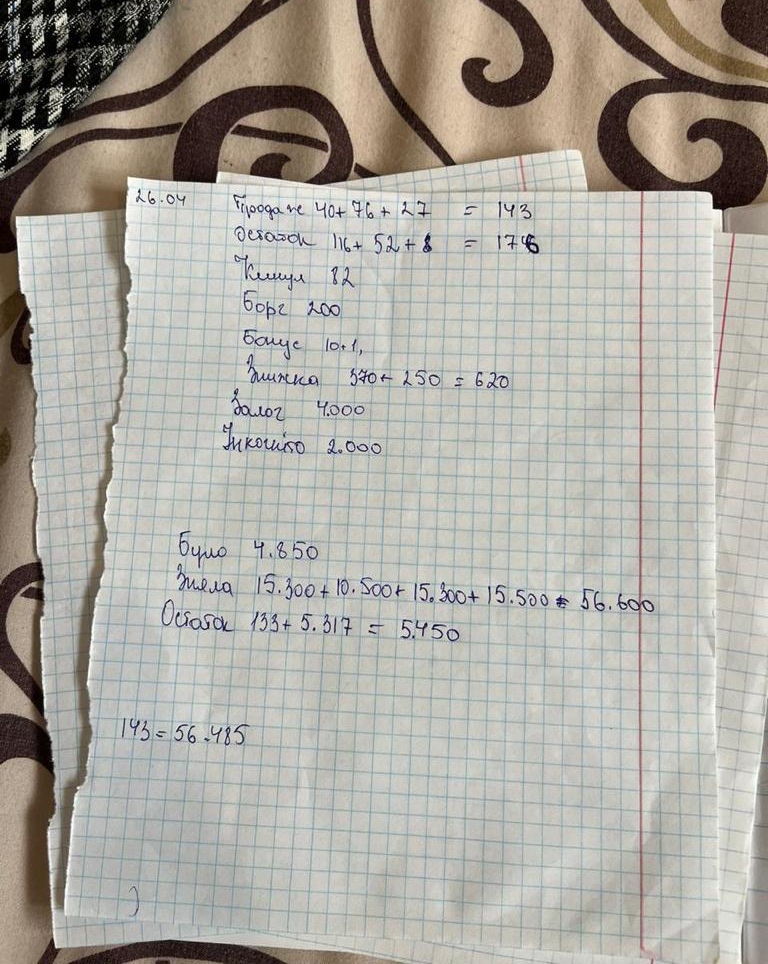 26.04 Продаж 40+76+27 = 143
Остаток 116+52+8 = 176
Кинул 82
Борг 200
Бонус 10+1,
Знижка 370+250 = 620
Залог 4.000
Інкогніто 2.000
Було 4.850
Зняла 15.300+10.500+15.300+15.500 = 56.600
Остаток 133+5.317 = 5.450
143=56.485